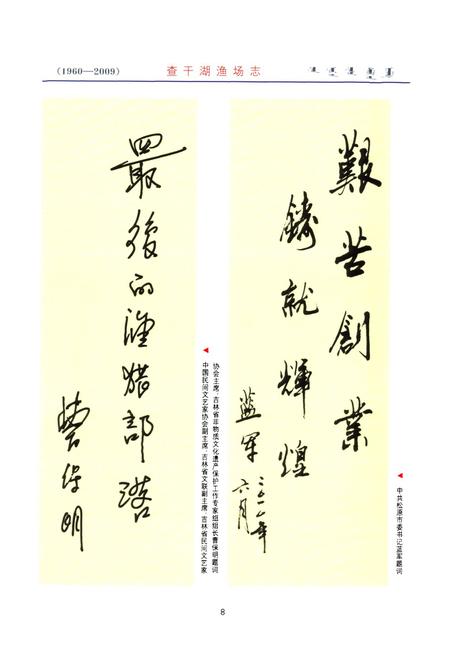 (1960—2009)
查干湖渔场志
艱苦創業
鑄就輝煌
蓝军
二〇一〇年
六月
中共松原市委书记蓝军题词
最後的渔猎部落
曹保明
中国民间文艺家协会副主席、吉林省文联副主席、吉林省民间文艺家
协会主席、吉林省非物质文化遗产保护工作专家组组长曹保明题词
8